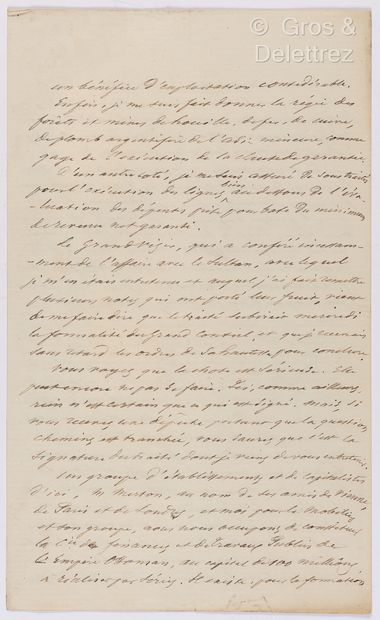 © Gros &
Delettrez
un bénéfice d'exploitation considérable.
Enfin, je me suis fait donner la régie des
forêts et mines de houille, de fer, de cuivre,
de plomb argentifère de l'Asie mineure, comme
gage de l'exécution de la clause de garantie.
D'un autre côté, je me suis assuré de
pour l'exécution des lignes bien au dessous de l'éva-
-luation des dépenses prise pour base du minimum
de revenu net garanti.
Le Grand Vizir, qui a conféré
-ment de l'affaire avec le Sultan, avec lequel
je m'en étais entretenu et auquel j'ai fait remettre
plusieurs notes qui ont porté leur fruit, vient
de me faire dire que le traité subirait mercredi
la formalité du Grand Conseil, et que je recevrais
sans retard les ordres de Sa Hautesse pour conclure.
Vous voyez que la chose est sérieuse. Elle
peut encore ne pas se faire. Ici, comme ailleurs,
rien n'est certain que ce qui est signé. Mais, si
vous recevez une dépêche portant que la question
chemins est tranchée, vous saurez que c'est la
signature du traité dont je viens de vous entretenir.
Un groupe d'établissements et de capitalistes
d'ici, M. Merton, au nom de ses amis de Vienne,
de Paris et de Londres, et moi pour le Mobilier
et son groupe, nous nous occupons de constituer
la Cie de finances et de Travaux Publics de
l'Empire Ottoman, au capital de 100 millions,
à réaliser par séries. Il existe pour la formation